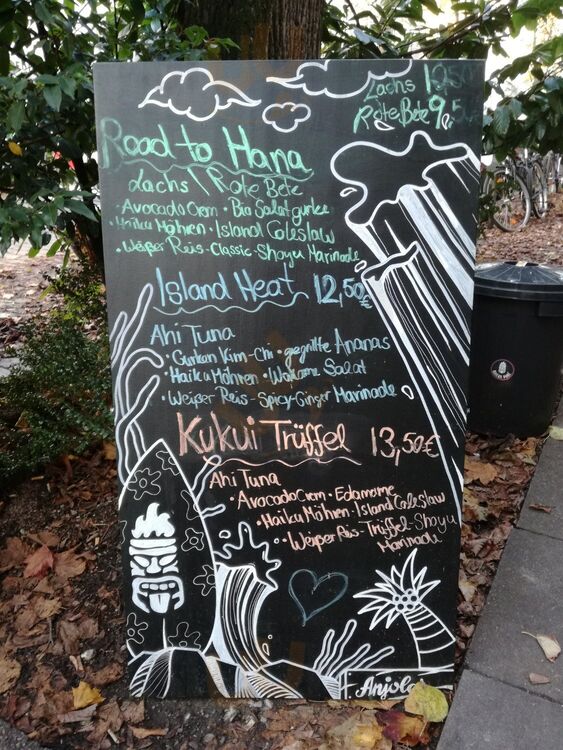 Lachs
Rote Bete 9,50
Road to Hana
Lachs / Rote Bete
· Avocado Crem · Bio Salatgurke
· Haiku Möhren · Island Coleslaw
· Weißer Reis - Classic - Shoyu Marinade
Island Heat 12,50€
Ahi Tuna
· Gurken Kim-Chi · gegrillte Ananas
· Haiku Möhren · Wakame Salat
· Weißer Reis - Spicy-Ginger Marinade
Kukui Trüffel 13,50€
Ahi Tuna
· Avocado Crem · Edamame
· Haiku Möhren · Island Coleslaw
· Weißer Reis - Trüffel-Shoyu
Marinade